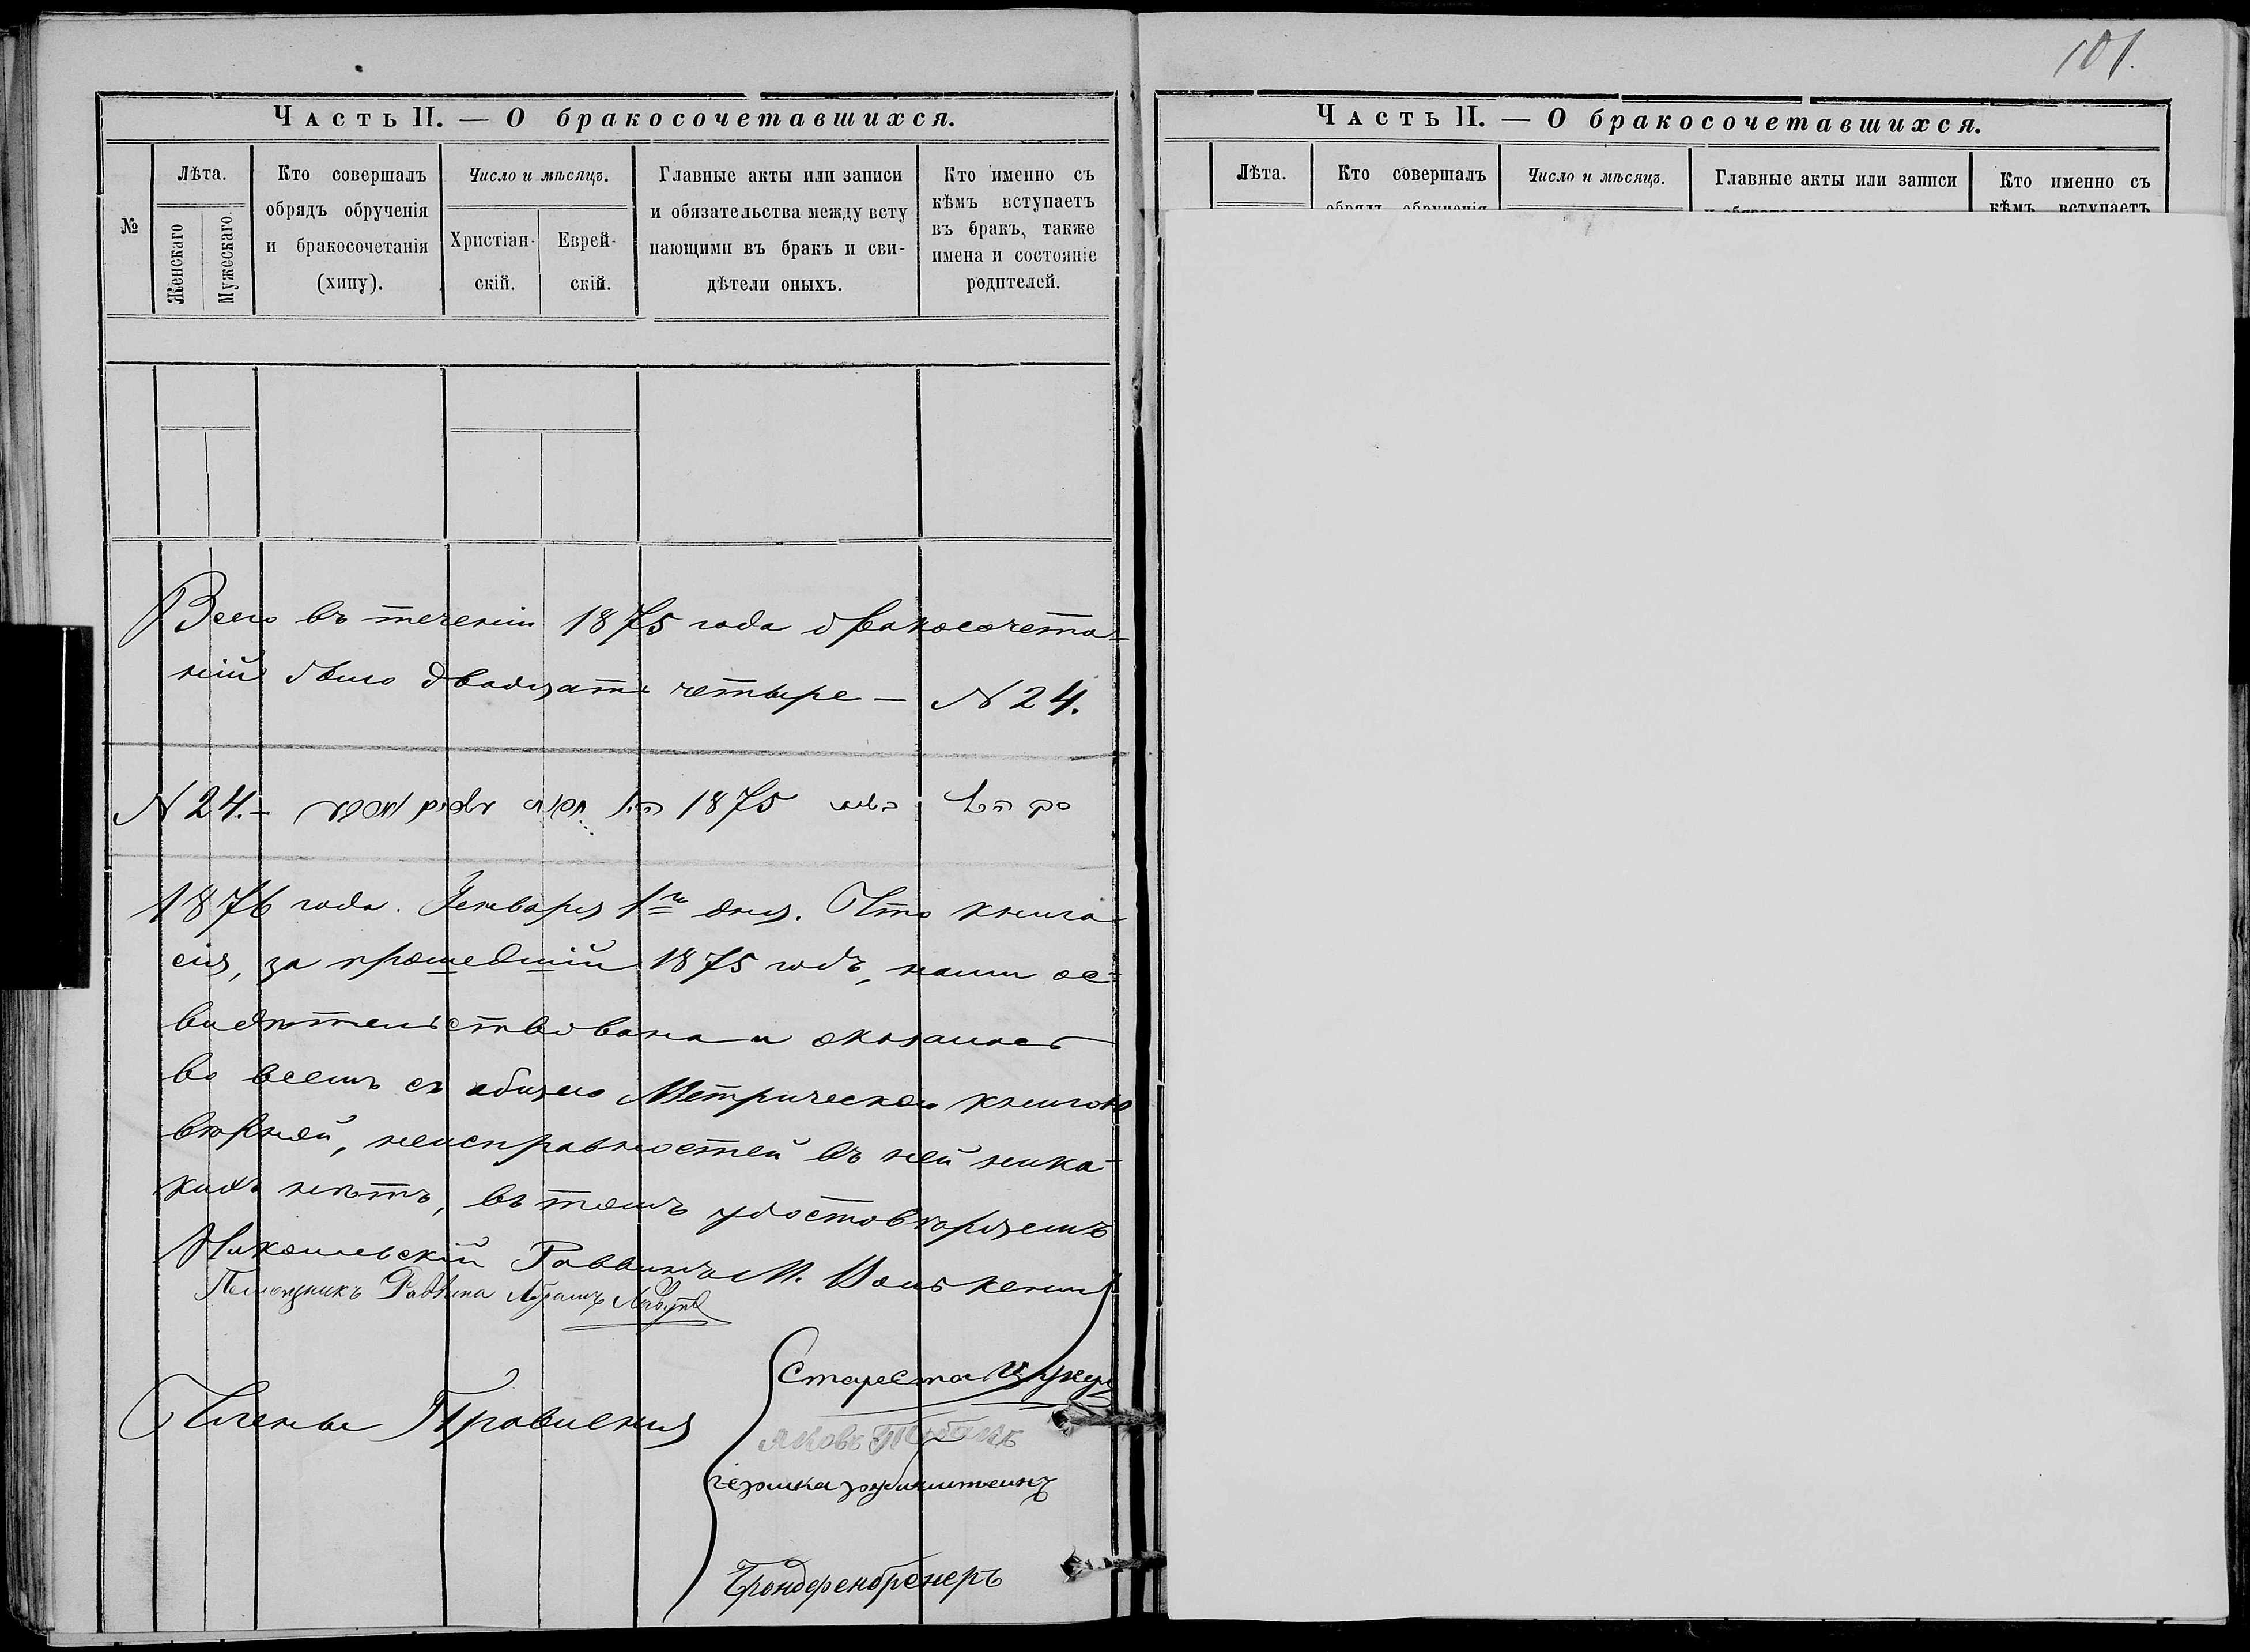 101.
Часть II. — О бракосочетавшихся.
№
Лѣта.
Женскаго
Мужескаго.
Кто совершалъ
обрядъ обрученія
и бракосочетанія
(хипу).
Число и мѣсяцъ.
Христіан-
скій.
Еврей-
скій.
Главные акты или записи
и обязательства между всту
пающими въ бракъ и сви-
дѣтели оныхъ.
Кто именно съ
кѣмъ вступаетъ
въ бракъ, также
имена и состояніе
родителей.
Всего въ теченіи 1875 года бракосочета-
ній было двадцать четыре — N 24.
N 24. — 1875
1876 года. Генваря 1го дня. Что книга
сія, за прошедшій 1875 годъ, нами ос-
видѣтельствована и оказалось
во всемъ съ общею Метрическою книгою
вѣрной, неисправностей въ ней ника-
кихъ нѣтъ, въ томъ удостовѣряемъ
Николаевскій Раввинъ М.
Помощникъ Раввина Абрамъ
Члены Правленія
Староста Цукер
Яковъ
рубинштеинъ
Часть II. — О бракосочетавшихся.
Лѣта.
Кто совершалъ
обрядъ обрученія
Число и мѣсяцъ.
Главные акты или записи
Кто именно съ
кѣмъ вступаетъ